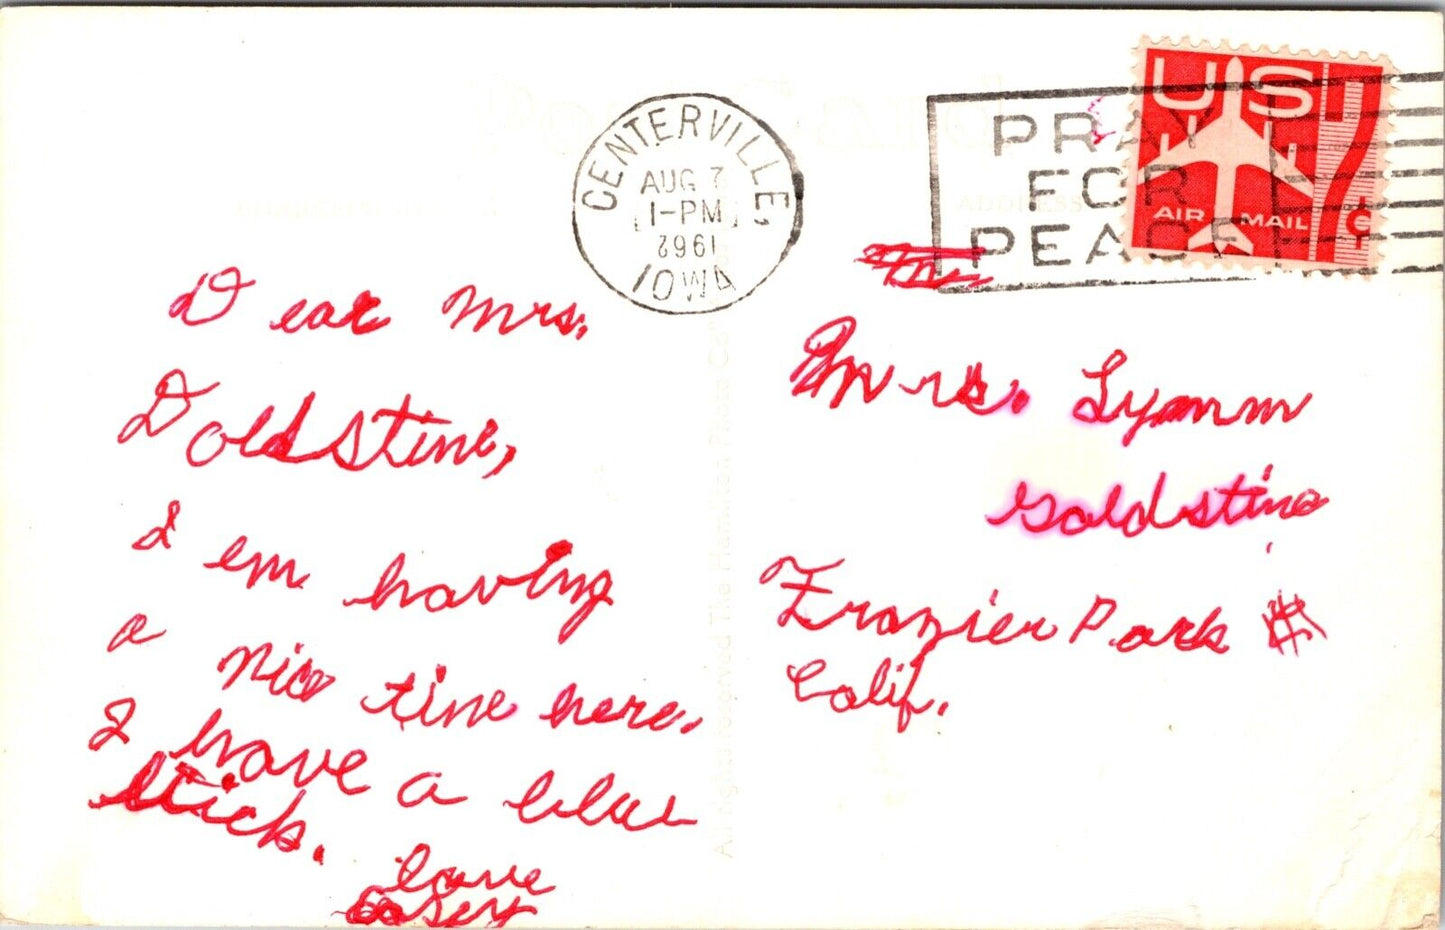 CENTERVILLE,
AUG 7
1-PM
1962
IOWA
PRAY
FOR
PEACE
US
7¢
AIR MAIL
ADDRESS
Dear Mrs.
Doldstine,
I em having
a nice tine here.
I have a blue
stick.
love
Casey
Mrs. Lynnm
Goldstine
Frazier Park
Calif.
All rights reserved The Hamilton Photo Co.